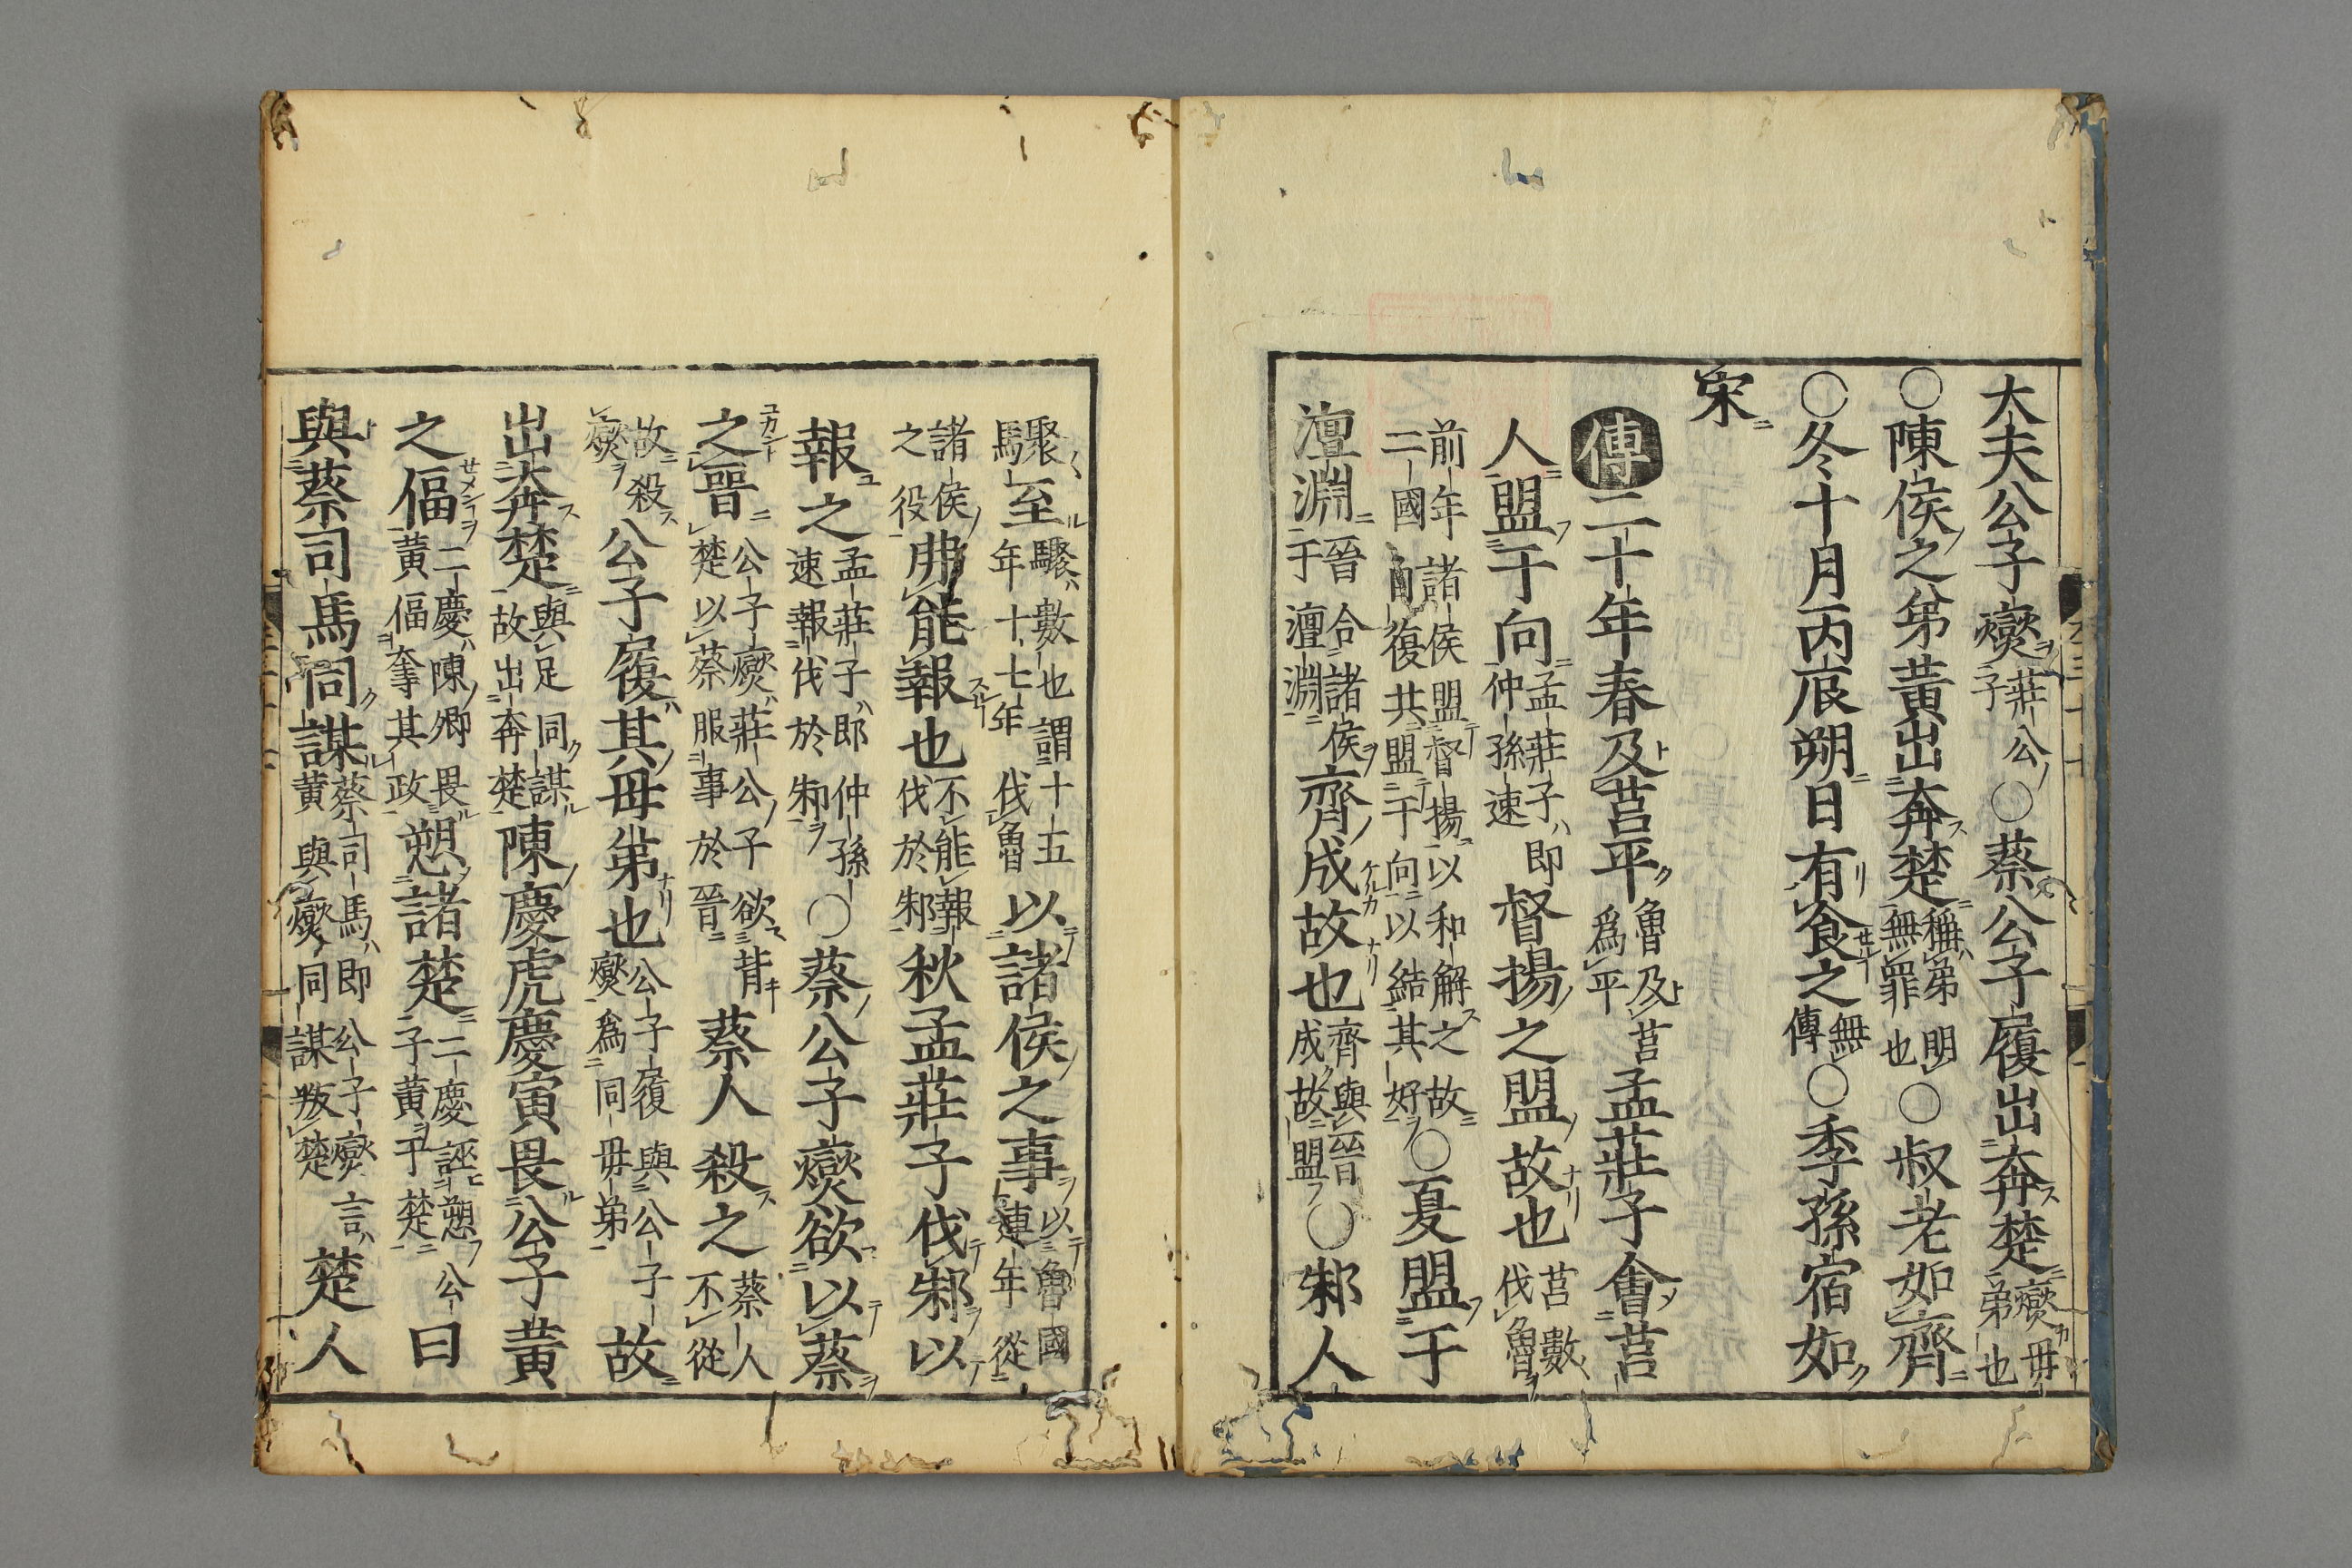 大夫公子燮莊公子○蔡公子履出奔楚燮母弟也
○陳侯之弟黃出奔楚稱弟明無罪也○叔老如齊
○冬十月丙辰朔日有食之無傳○季孫宿如
宋
傳二十年春及莒平魯及莒爲平孟莊子會莒
人盟于向孟莊子即仲孫速督揚之盟故也莒數伐魯
前年諸侯盟督揚以和解之故二國自復共盟于向以結其好○夏盟于
澶淵晉合諸侯于澶淵齊成故也齊與晉成故盟○邾人
驟至驟數也謂十五年十七年伐魯以諸侯之事以魯國連年從
諸侯之役弗能報也不能報伐於邾秋孟莊子伐邾以
報之孟莊子即仲孫速報伐於邾○蔡公子燮欲以蔡
之晉公子燮莊公子欲背楚以蔡服事於晉蔡人殺之蔡人不從
故殺燮公子履其母弟也公子履與公子燮爲同母弟故
出奔楚與兄同謀故出奔楚陳慶虎慶寅畏公子黃
之偪二慶陳卿畏黃偪奪其政愬諸楚二慶誣愬公子黃于楚曰
與蔡司馬同謀蔡司馬即公子燮言黃與燮同謀叛楚楚人